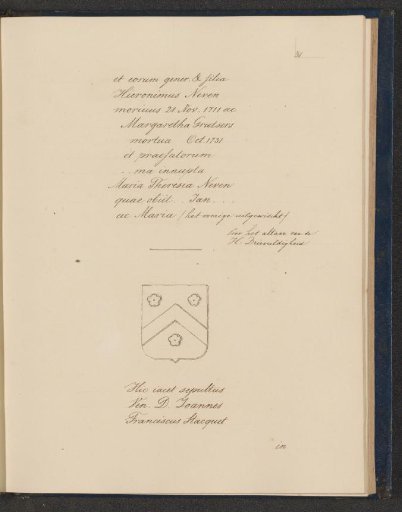 31
et eorum gener & filia
Hieronimus Neven
mortuus 21 Nov. 1711 ac
Margaretha Gratsers
mortua Oct. 1731
et praefatorum
. . ma innupta
Maria Theresia Neven
quae obiit . . Jan. . .
ac Maria (het overige uitgewischt)
voor het altaar van de
H. Drievuldigheid
Hic iacet sepultus
Ven. D. Joannes
Franciscus Hacquet
in